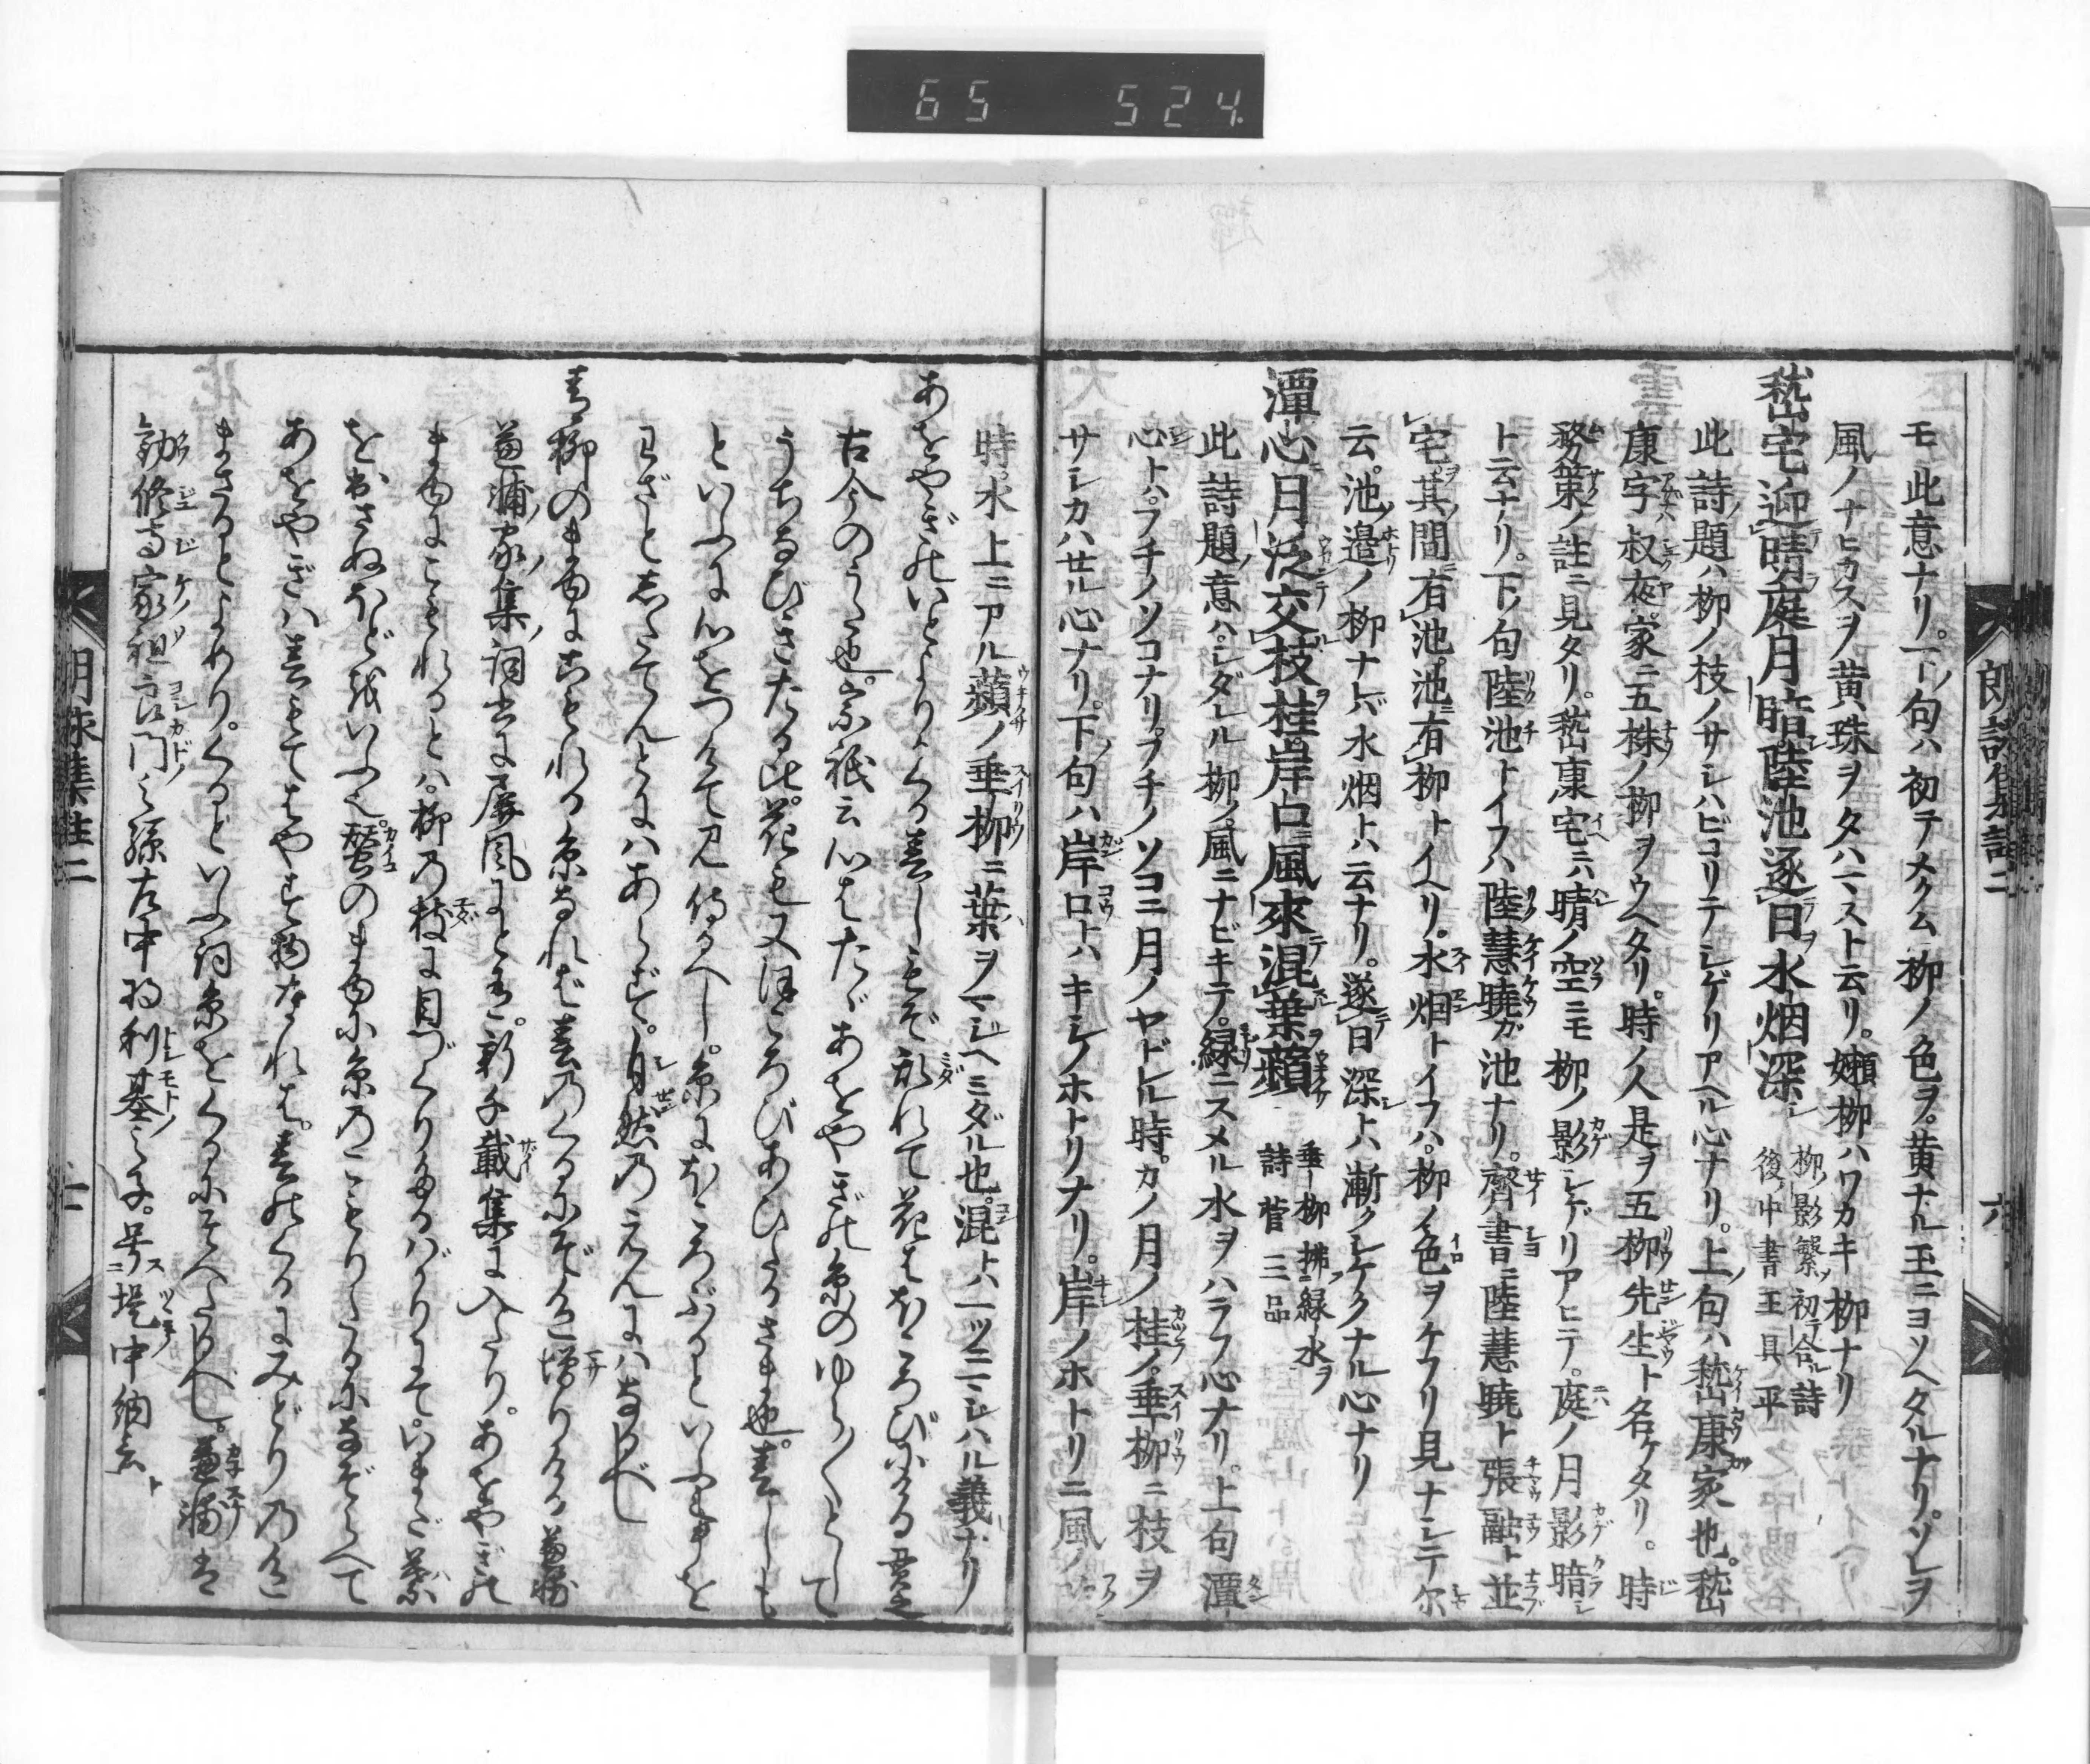 65 524.
モ此意ナリ。下ノ句ハ初テメクム柳ノ色ヲ。黄ナル玉ニヨソヘタルナリ。ソレヲ
風ノナヒカスヲ黄珠ヲタハマスト云リ。嫩柳ハワカキ柳ナリ
嵆宅迎晴庭月暗陸池逐日水烟深
柳影繁初合詩
後中書王具平
此詩ノ題ハ柳ノ枝ノサシハビコリテシゲリアヘル心ナリ。上ノ句ハ嵆康家也。嵆
康字ハ叔夜。家ニ五株ノ柳ヲウヘタリ。時ノ人是ヲ五柳先生ト名ケタリ。時
務策ノ註ニ見タリ。嵆康宅ニハ晴ノ空ニモ柳ノ影シゲリアヒテ。庭ノ月影暗シ
ト云ナリ。下ノ句陸池トイフハ陸慧曉ガ池ナリ。齊書ニ陸慧曉ト張融ト並
宅。其間有池。池ニ有柳トイヘリ。水烟トイフハ。柳ノ色ヲケフリ見ナシテ尔
云。池ノ邉ノ柳ナレバ水烟トハ云ナリ。逐日深トハ漸クシケクナル心ナリ
潭心月泛交枝桂岸口風來混葉蘋
垂柳拂緑水ヲ
詩 菅三品
此詩題ノ意ハシダレル柳ノ風ニナビキテ。緑ニスメル水ヲハラフ心ナリ。上句潭
心トハフチノソコナリ。フチノソコニ月ノヤドレル時。カノ月ノ桂ノ垂柳ニ枝ヲ
サシカハセル心ナリ。下ノ句ハ岸口トハキシノホトリナリ。岸ノホトリニ風ノ
朗詠集註二
六
時。水上ニアル蘋ノ垂柳ニ葉ヲマシヘミダル也。混トハ一ツニマシハル義ナリ
あをやぎのいとよりかくる春しもぞみだれて花はほころびにける 貫之
古今のうた也。宗祇云心はたゞあをやぎの糸のゆら〱として
うちなびきたる比。花も又ほころびあひたるさま也。春しも
といふに心をつけて見侍るべし。糸にほころぶるといふ事を
わざとしたてんとにハあらず。自然のえんにハなるべし
青柳のまゆにこもれる糸なれば春のくるにぞ色増りける 兼輔
兼輔家ノ集ノ詞書に屏風にと有。新千載集に入たり。あをやぎの
まゆにこもれるとハ。柳の枝に目づくりたるばかりにていまだ葉
をおさぬほどをいふ也。蚕のまゆに糸のこもりたるになぞらへて
あをやぎハ春もてはやす物なれは。春のくるにみどりの色
まさるとよめり。くるといふ詞糸をくるにそへたるべし。兼輔は
勧修寺家祖良門之孫右中将利基之子。号ス堤中納言ト